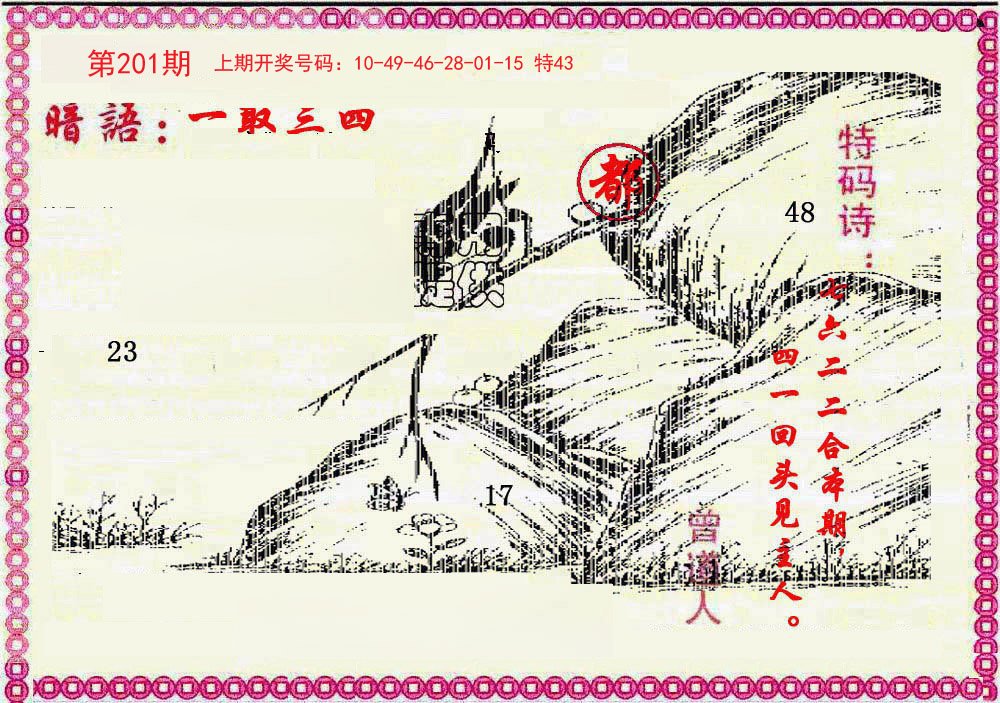 第201期 上期开奖号码：10-49-46-28-01-15 特43
暗語：一取三四
都
48
23
17
特码诗：
七六二二合本期，
四一回头见主人。
曾道人